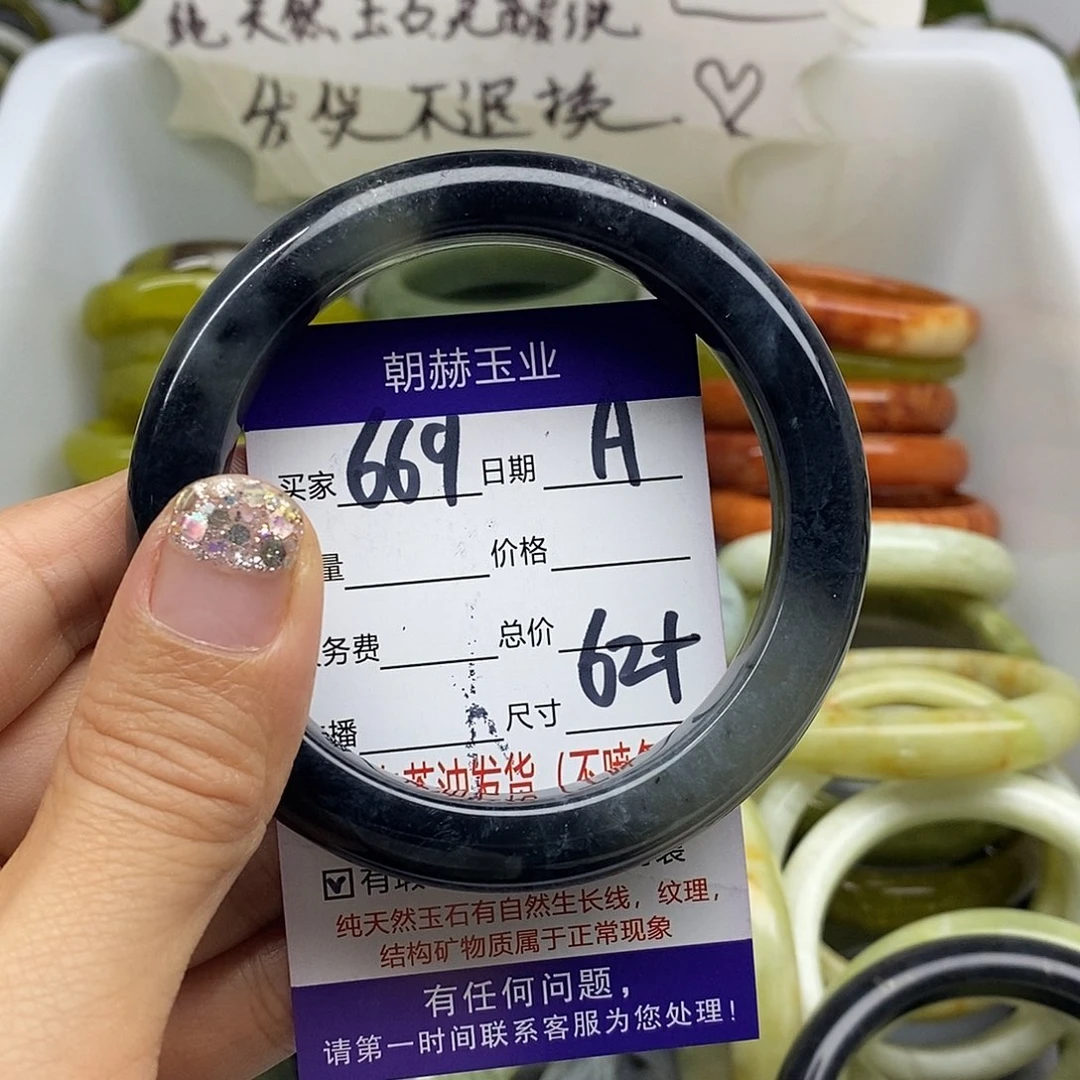 纯天然玉石无酸洗
发货不退换
朝赫玉业
买家 669 日期 A
量 价格
务费 总价
播 尺寸 62+
茶油发货（不喷
有瑕
纯天然玉石有自然生长线，纹理，
结构矿物质属于正常现象
有任何问题，
请第一时间联系客服为您处理！